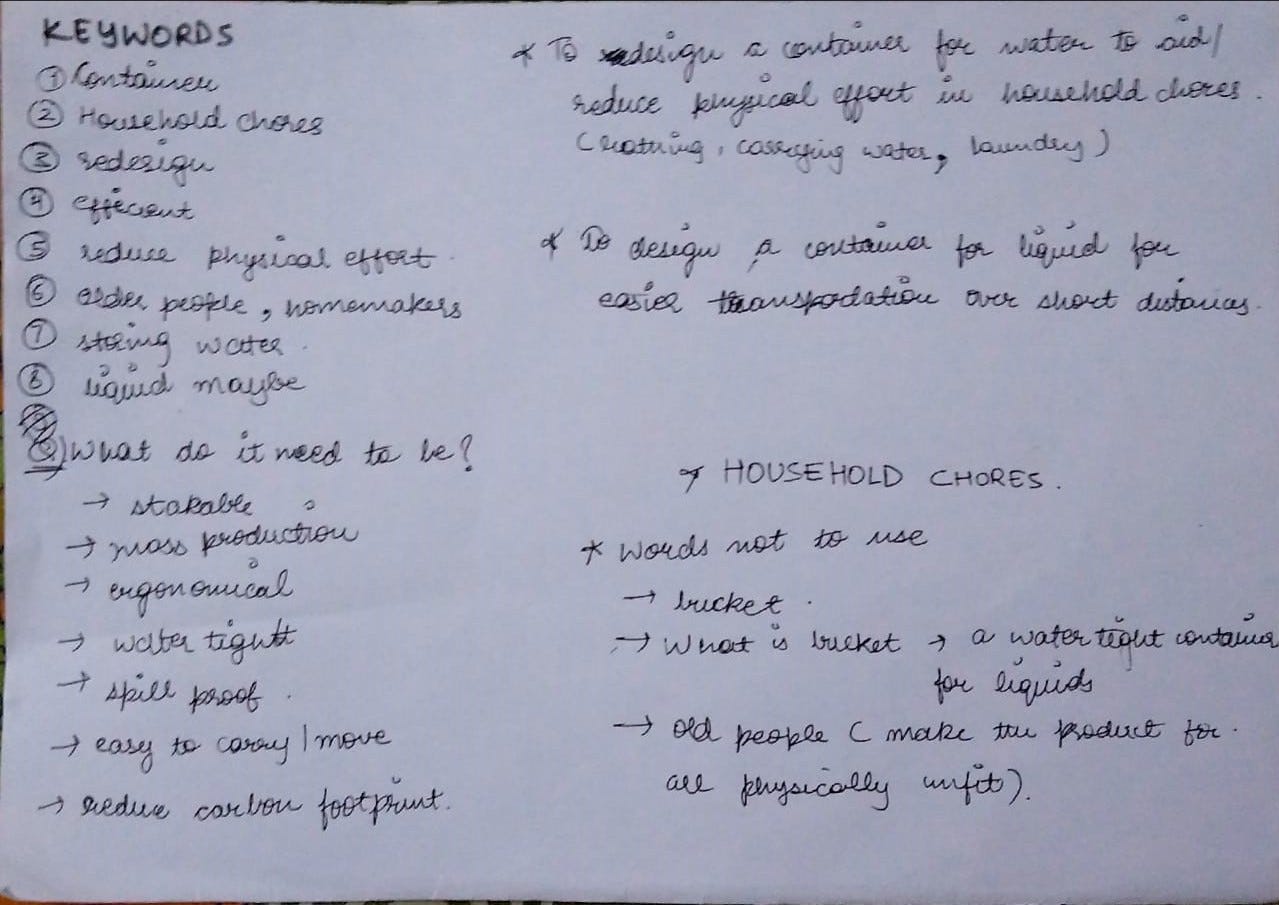 KEYWORDS
① Container
② Household chores
③ redesign
④ efficient
⑤ reduce physical effort.
⑥ older people, homemakers
⑦ storing water.
⑧ liquid maybe
Q) What do it need to be?
→ stakable
→ mass production
→ ergonomical
→ water tight
→ spill proof.
→ easy to carry / move
→ reduce carbon footprint.
* To design a container for water to aid/
reduce physical effort in household chores.
(bathing, carrying water, laundry)
* To design a container for liquid for
easier transportation over short distances.
→ HOUSEHOLD CHORES.
* Words not to use
→ bucket.
→ What is bucket → a water tight container
for liquids
→ old people (make the product for.
all physically unfit).